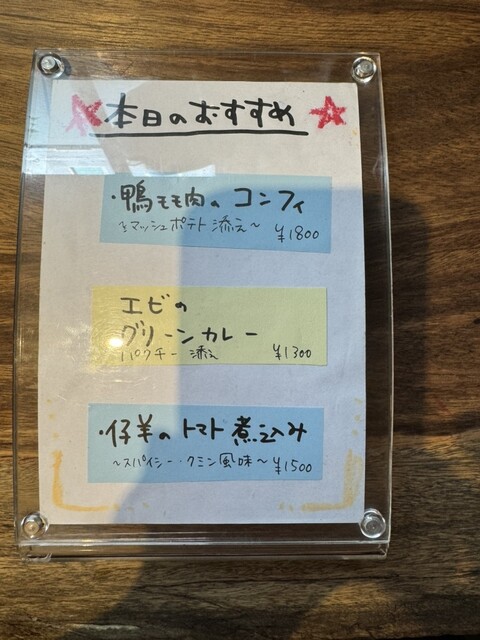 本日のおすすめ
・鴨モモ肉のコンフィ
~マッシュポテト添え~ ¥1800
エビの
グリーンカレー
パクチー添え ¥1300
・仔羊のトマト煮込み
~スパイシー・クミン風味~ ¥1500